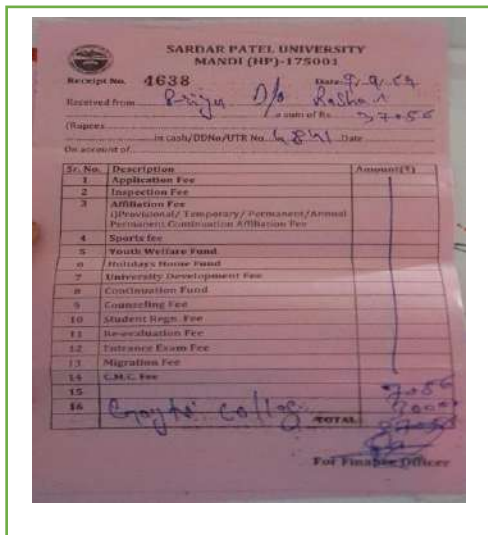 SARDAR PATEL UNIVERSITY
MANDI (HP)-175001
Receipt No. 4638 Date
Received from D/o
a sum of Rs.
(Rupees
in cash/DDNo/UTR No. Date
On account of
Sr. No. Description Amount(₹)
1 Application Fee
2 Inspection Fee
3 Affiliation Fee
i)Provisional/ Temporary/ Permanent/Annual
Permanent Continuation Affiliation Fee
4 Sports fee
5 Youth Welfare Fund
6 Holidays Home Fund
7 University Development Fee
8 Continuation Fund
9 Counseling Fee
10 Student Regn. Fee
11 Re-evaluation Fee
12 Entrance Exam Fee
13 Migration Fee
14 C.M.C. Fee
15
16
TOTAL
For Finance Officer